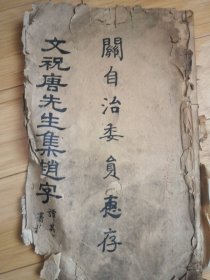 關自治委員惠存
文祝唐先生集趙字